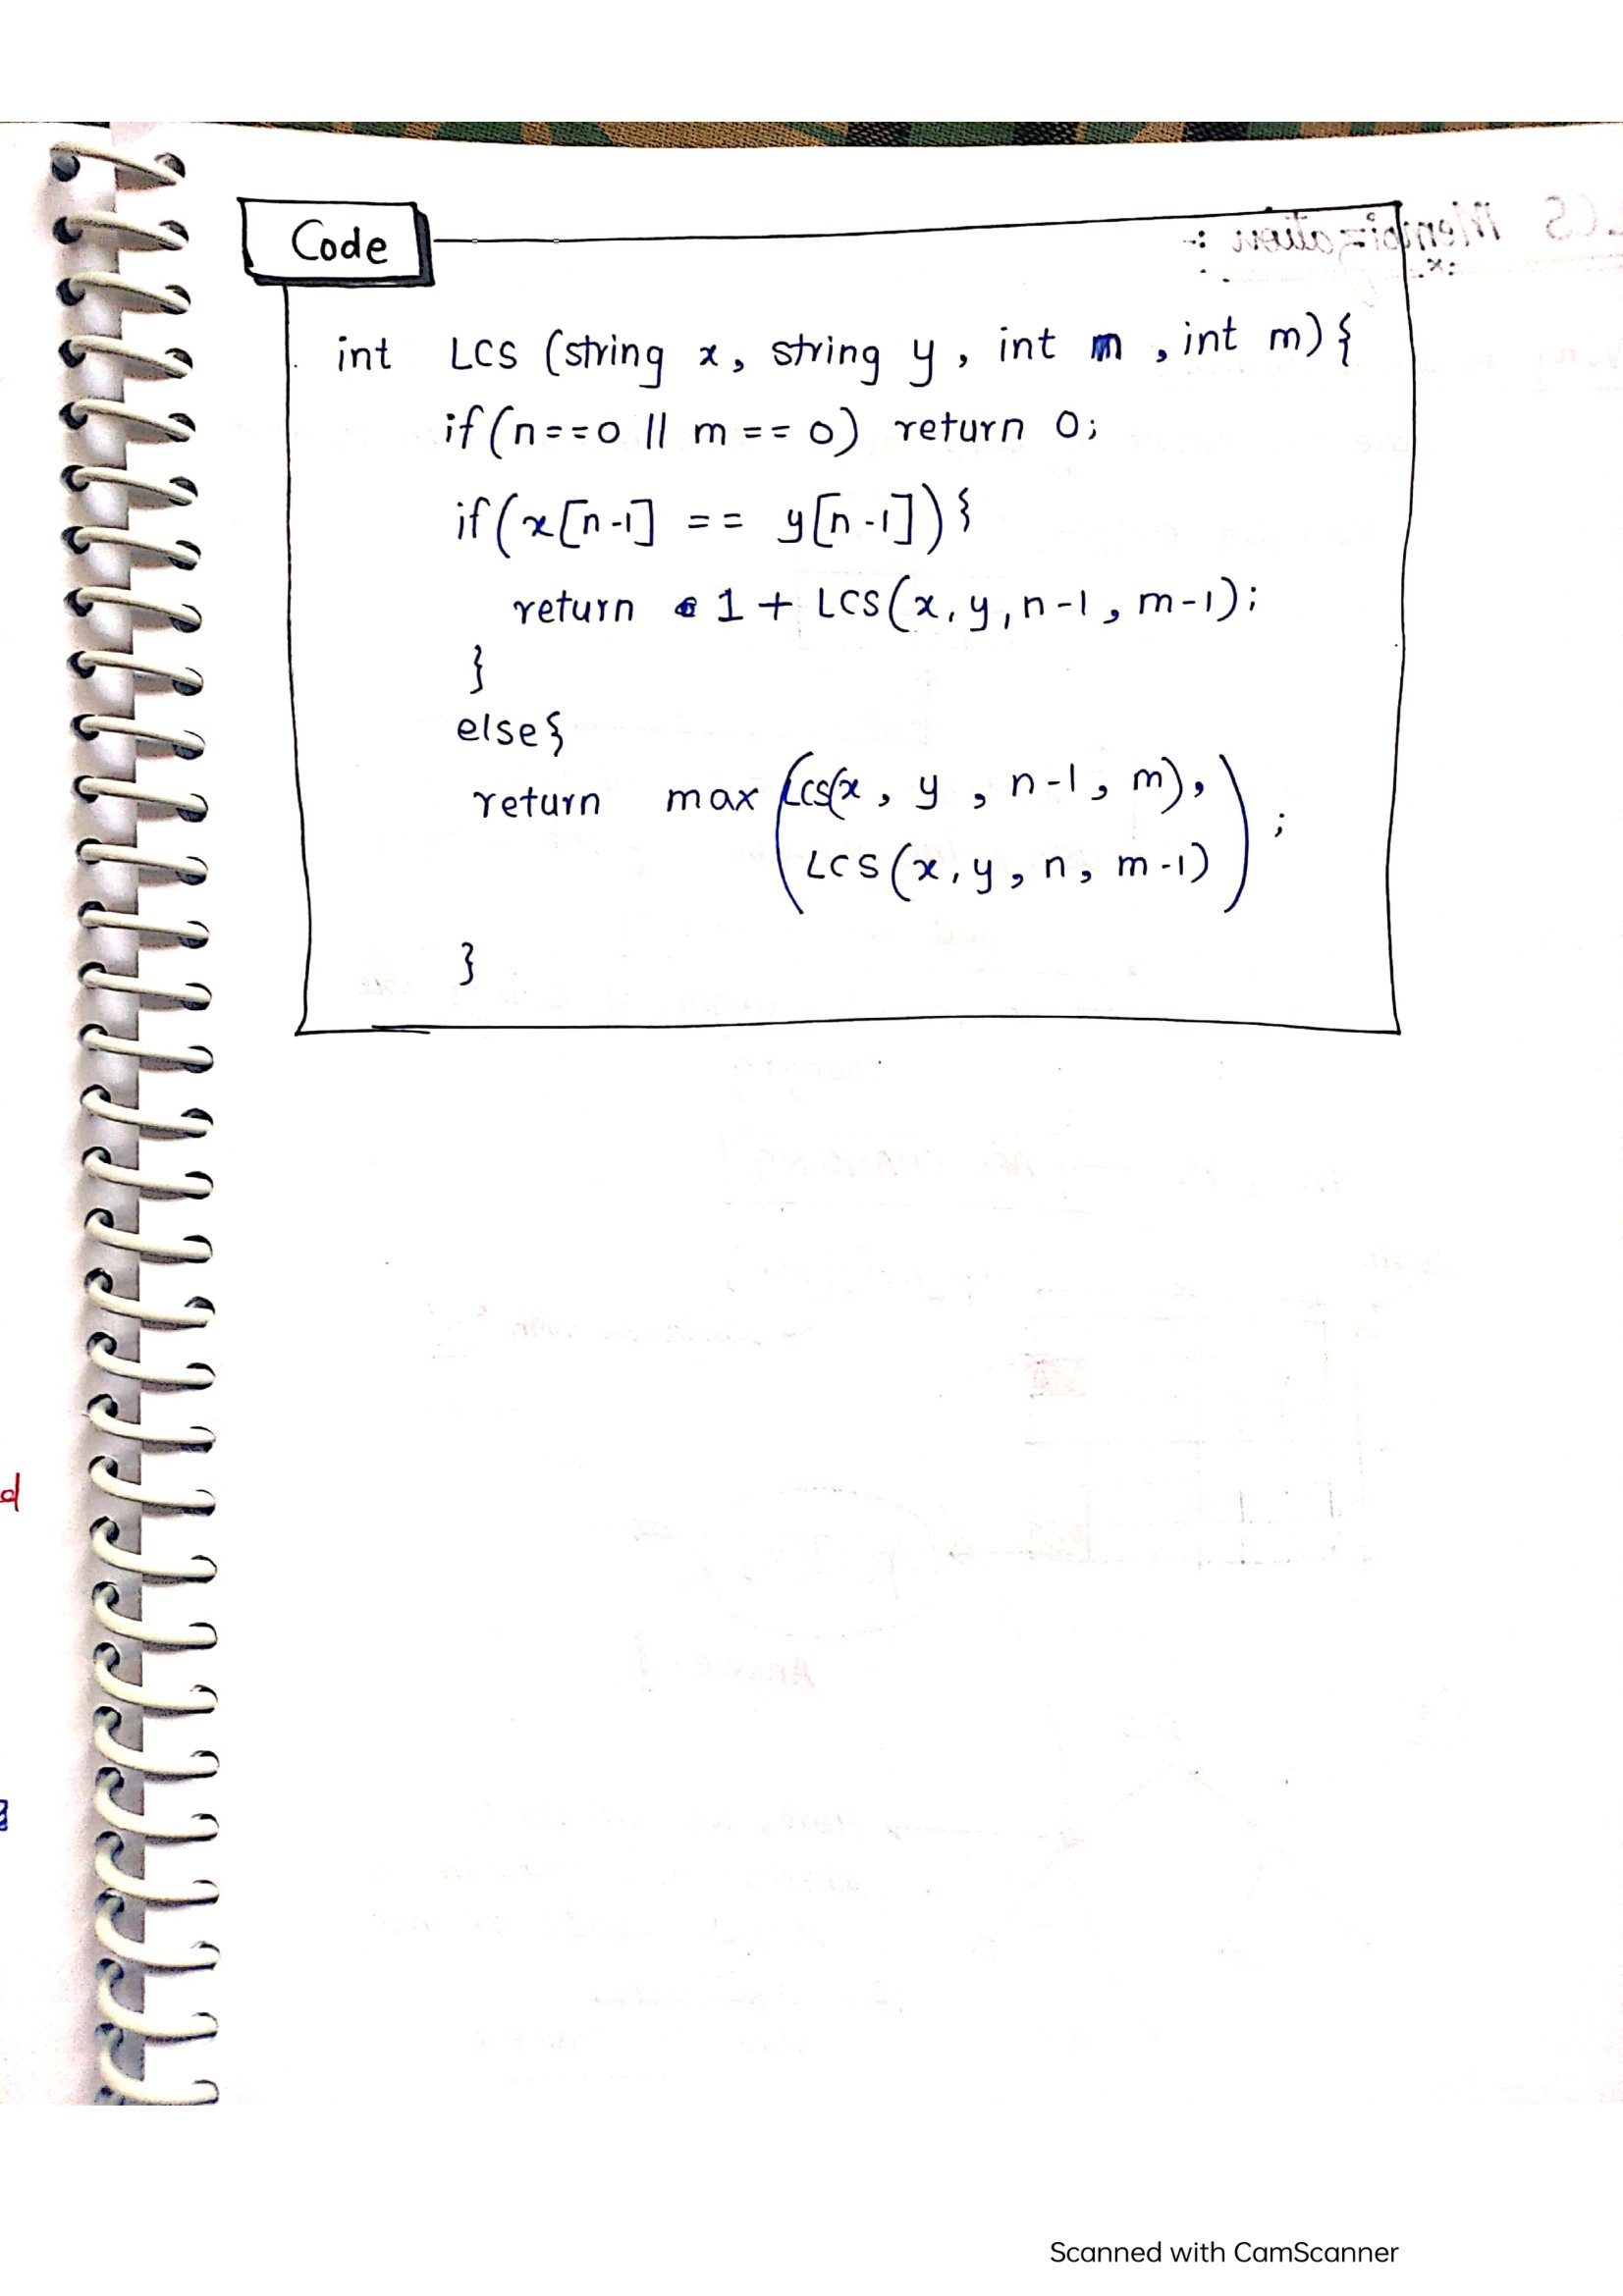 LCS Memoization :-
Code
int LCS (string x, string y, int n, int m) {
if (n==0 || m == 0) return 0;
if (x[n-1] == y[n-1]) {
return 1 + LCS(x, y, n-1, m-1);
}
else {
return max (LCS(x, y, n-1, m),
LCS(x, y, n, m-1) ) ;
}
d
Scanned with CamScanner